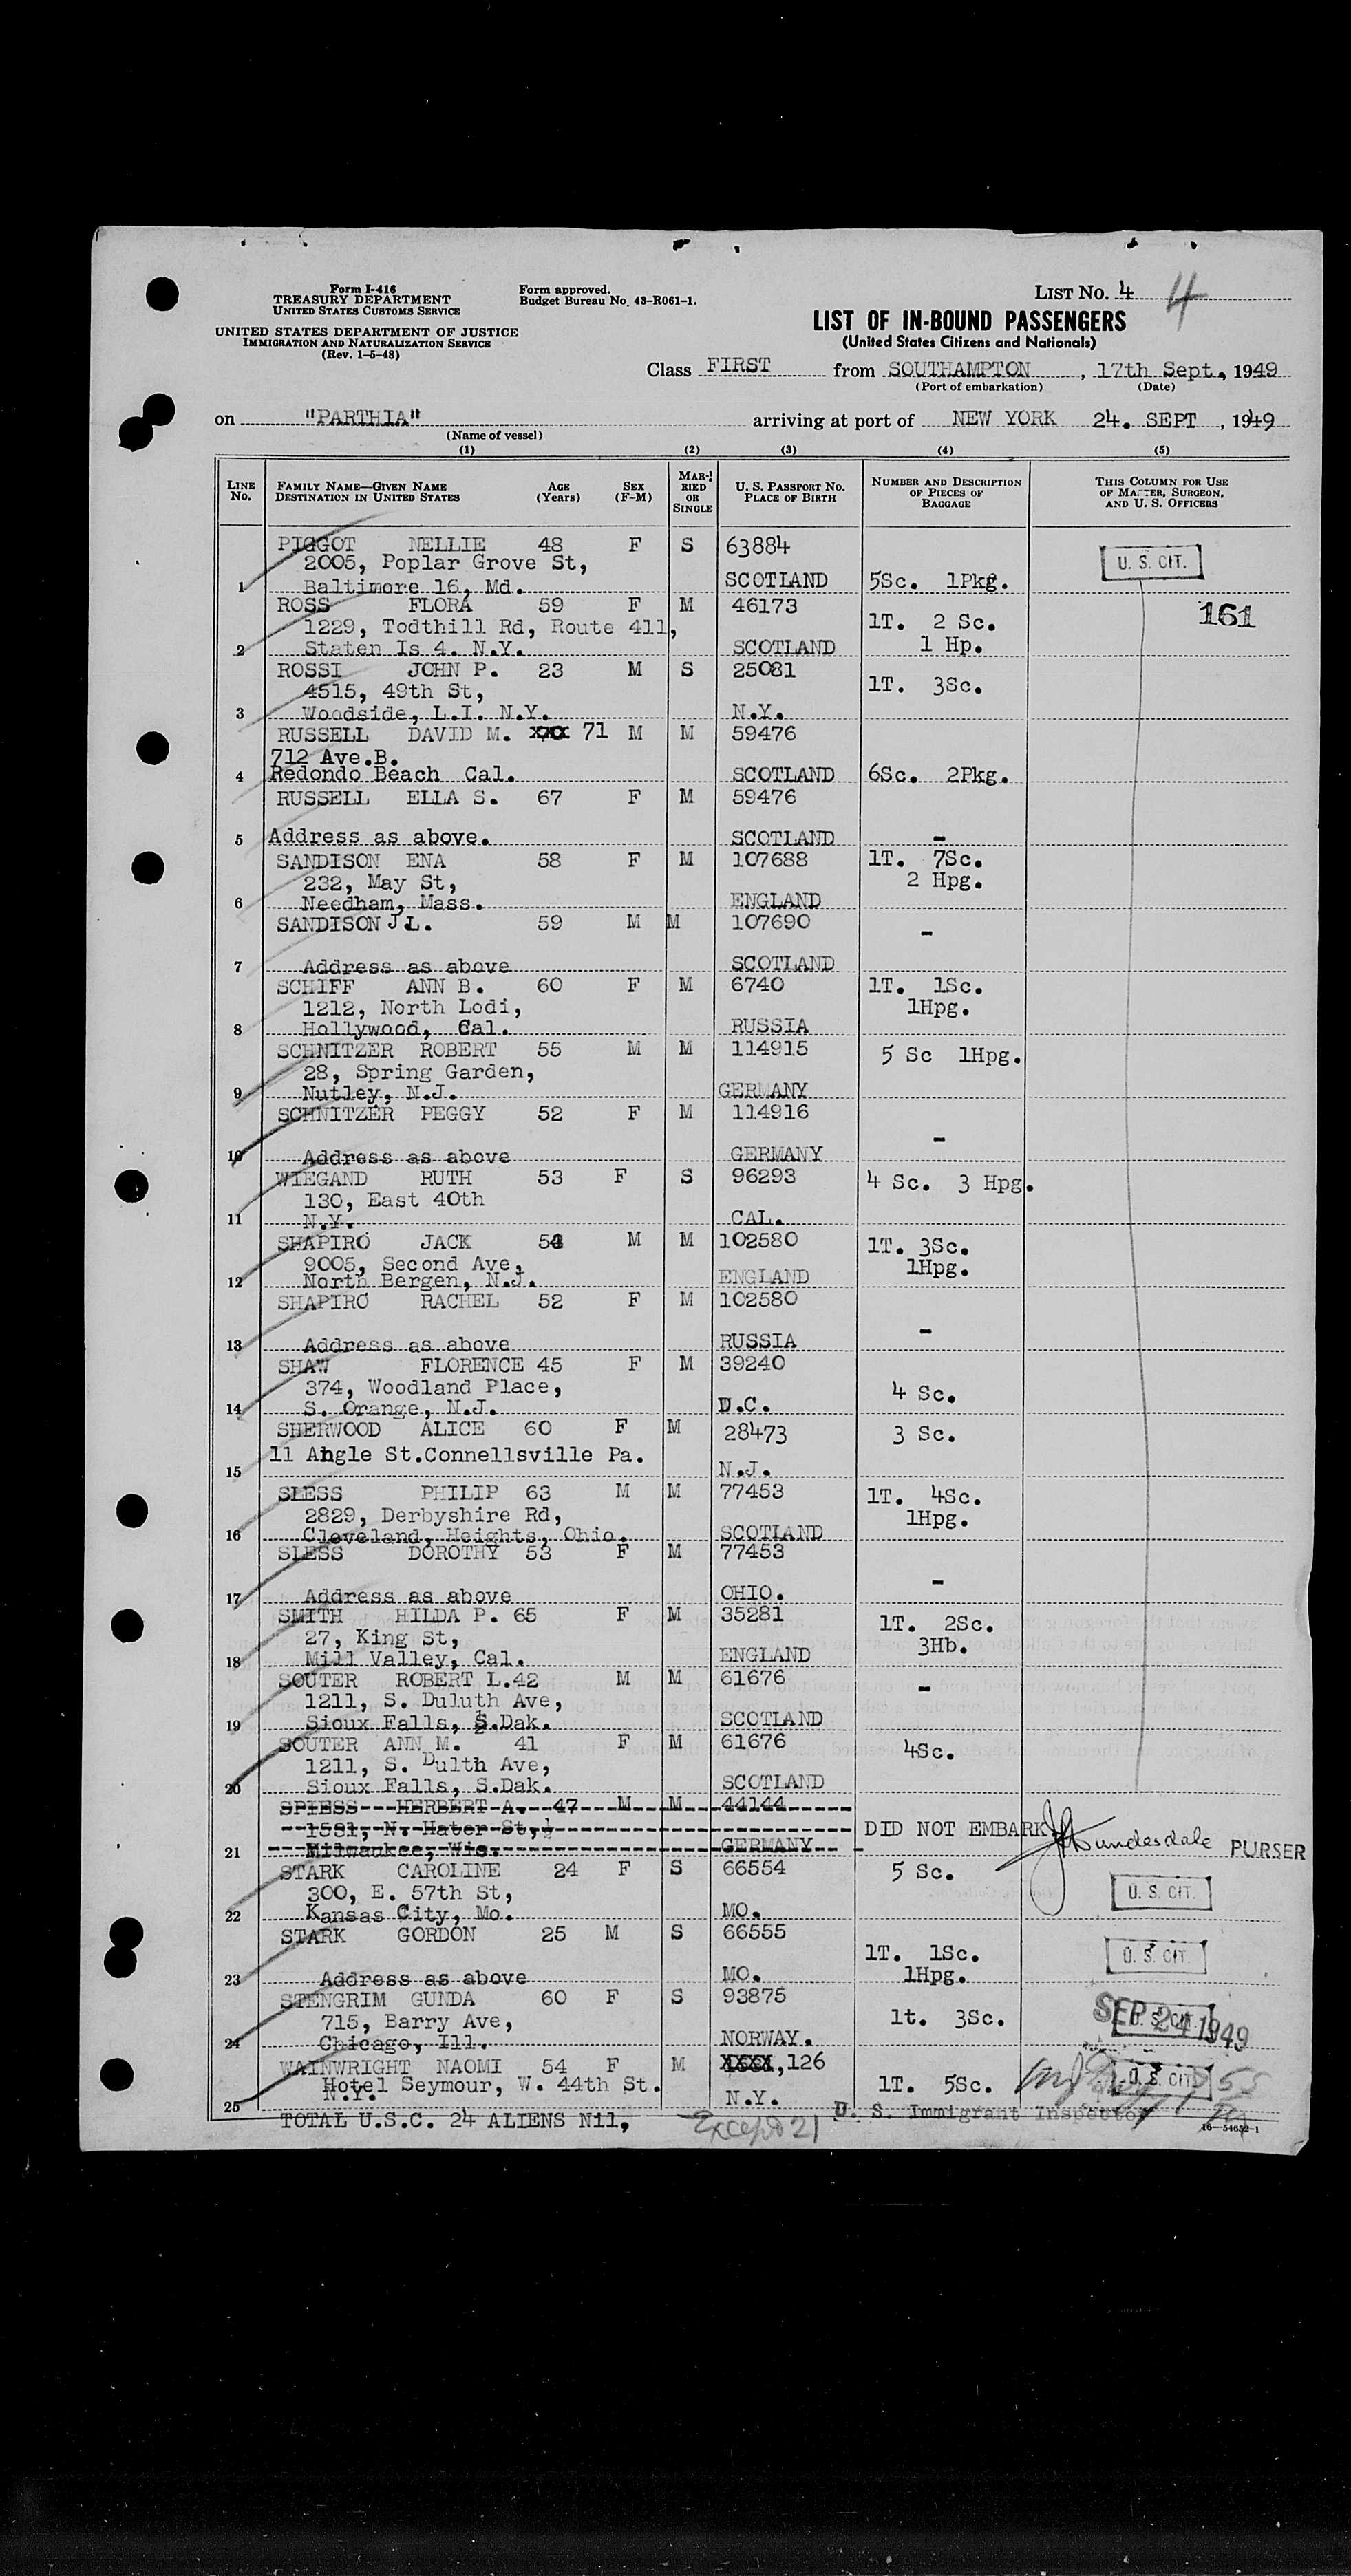 Form I-416
TREASURY DEPARTMENT
UNITED STATES CUSTOMS SERVICE
UNITED STATES DEPARTMENT OF JUSTICE
IMMIGRATION AND NATURALIZATION SERVICE
(Rev. 1-5-48)
Form approved.
Budget Bureau No. 43-R061-1.
LIST No. 4 4
LIST OF IN-BOUND PASSENGERS
(United States Citizens and Nationals)
Class FIRST from SOUTHAMPTON, 17th Sept., 1949
(Port of embarkation) (Date)
on "PARTHIA" arriving at port of NEW YORK 24. SEPT, 1949
(Name of vessel)
(1) (2) (3) (4) (5)
LINE No. FAMILY NAME—GIVEN NAME DESTINATION IN UNITED STATES AGE (Years) SEX (F-M) MARRIED OR SINGLE U. S. PASSPORT No. PLACE OF BIRTH NUMBER AND DESCRIPTION OF PIECES OF BAGGAGE THIS COLUMN FOR USE OF MASTER, SURGEON, AND U. S. OFFICERS
PIGGOT NELLIE 48 F S 63884 U. S. CIT.
2005, Poplar Grove St,
1 Baltimore 16, Md. SCOTLAND 5Sc. 1Pkg.
ROSS FLORA 59 F M 46173 161
1229, Todthill Rd, Route 411, 1T. 2 Sc.
2 Staten Is 4. N.Y. SCOTLAND 1 Hp.
ROSSI JOHN P. 23 M S 25081
4515, 49th St, 1T. 3Sc.
3 Woodside, L.I. N.Y. N.Y.
RUSSELL DAVID M. xxx 71 M M 59476
712 Ave.B.
4 Redondo Beach Cal. SCOTLAND 6Sc. 2Pkg.
RUSSELL ELLA S. 67 F M 59476
5 Address as above. SCOTLAND -
SANDISON ENA 58 F M 107688 1T. 7Sc.
232, May St, 2 Hpg.
6 Needham, Mass. ENGLAND
SANDISON J L. 59 M M 107690 -
7 Address as above SCOTLAND
SCHIFF ANN B. 60 F M 6740 1T. 1Sc.
1212, North Lodi, 1Hpg.
8 Hollywood, Cal. RUSSIA
SCHNITZER ROBERT 55 M M 114915 5 Sc 1Hpg.
28, Spring Garden,
9 Nutley, N.J. GERMANY
SCHNITZER PEGGY 52 F M 114916 -
10 Address as above GERMANY
WIEGAND RUTH 53 F S 96293 4 Sc. 3 Hpg.
130, East 40th
11 N.Y. CAL.
SHAPIRO JACK M M 102580 1T. 3Sc.
9005, Second Ave, 1Hpg.
12 North Bergen, N.J. ENGLAND
SHAPIRO RACHEL 52 F M 102580 -
13 Address as above RUSSIA
SHAW FLORENCE 45 F M 39240
374, Woodland Place, 4 Sc.
14 S. Orange, N.J. D.C.
SHERWOOD ALICE 60 F M 28473 3 Sc.
11 Angle St.Connellsville Pa.
15 N.J.
SLESS PHILIP 63 M M 77453 1T. 4Sc.
2829, Derbyshire Rd, 1Hpg.
16 Cleveland, Heights, Ohio. SCOTLAND
SLESS DOROTHY 53 F M 77453 -
17 Address as above OHIO.
SMITH HILDA P. 65 F M 35281 1T. 2Sc.
27, King St, 3Hb.
18 Mill Valley, Cal. ENGLAND
SOUTER ROBERT L.42 M M 61676 -
1211, S. Duluth Ave,
19 Sioux Falls, S.Dak. SCOTLAND
SOUTER ANN M. 41 F M 61676 4Sc.
1211, S. Dulth Ave,
20 Sioux Falls, S.Dak. SCOTLAND
SPIESS HERBERT A. 47 M M 44144
1581, N. Hater St, DID NOT EMBARK PURSER
21 Milwaukee, Wis. GERMANY
STARK CAROLINE 24 F S 66554 5 Sc. U. S. CIT.
300, E. 57th St,
22 Kansas City, Mo. MO.
STARK GORDON 25 M S 66555 1T. 1Sc. U. S. CIT.
23 Address as above MO. 1Hpg.
STENGRIM GUNDA 60 F S 93875 1t. 3Sc. U. S. CIT.
715, Barry Ave, SEP 24 1949
24 Chicago, Ill. NORWAY.
WAINWRIGHT NAOMI 54 F M xxxx,126 U. S. CIT.
Hotel Seymour, W. 44th St. 1T. 5Sc.
25 N.Y. N.Y.
TOTAL U.S.C. 24 ALIENS Nil, Except 21 U. S. Immigrant Inspector
16-54652-1